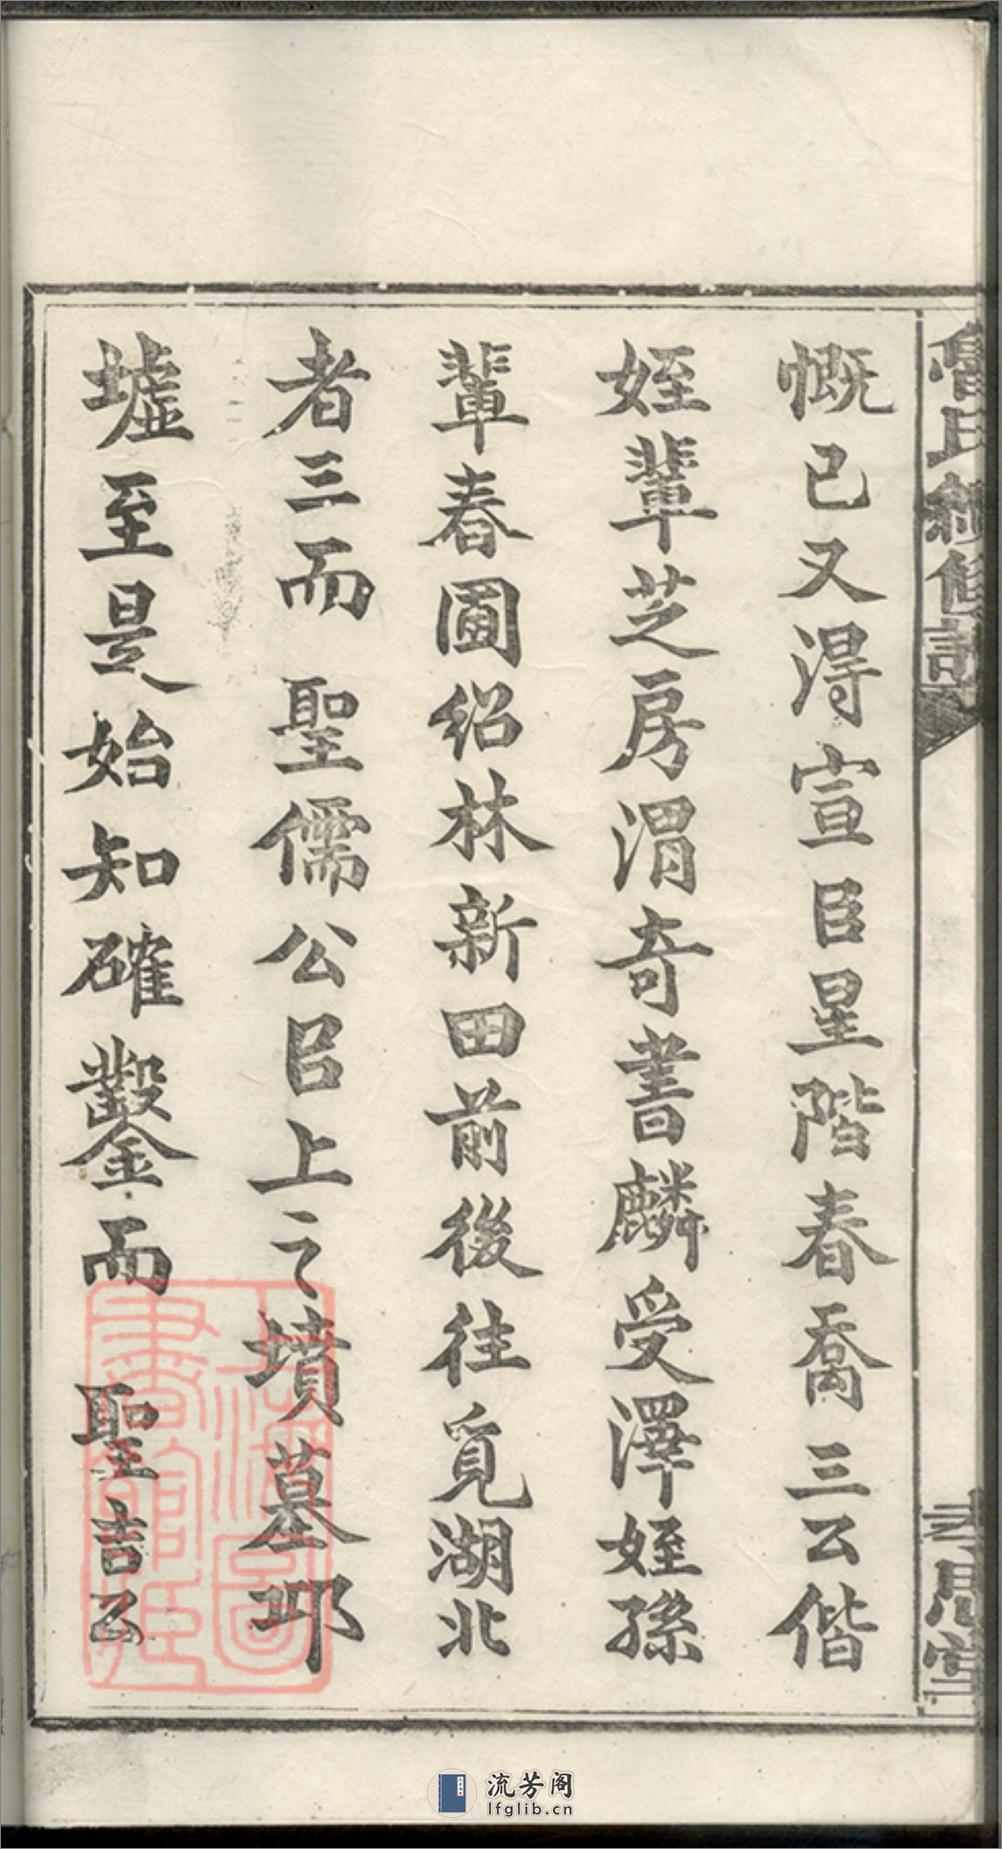 慨已又得宣臣星階春喬三公偕
姪輩芝房渭奇書麟受澤姪孫
輩春圃紹林新田前後往覓湖北
者三而 聖儒公呂上之墳墓邱
墟至是始知確鑿而 聖吉公
氏續修
上海圖書館藏
流芳阁
lfglib.cn